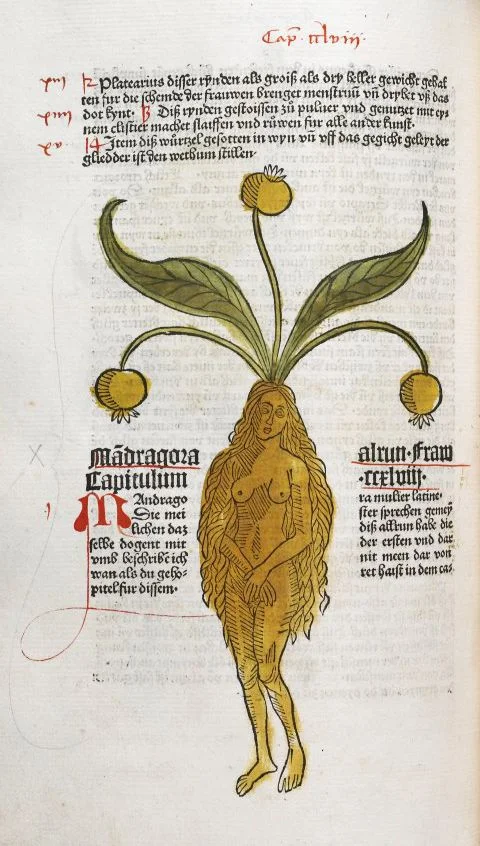 Cap. cclviii.
xiii R Platearius disser rynden als groiß als dry heller gewicht gehal
ten fur die schemde der frauwen brenget menstruū vñ drybet vß das
xiiii dot kynt. R Diß rynden gestoissen zu puluer vnd genutzet mit eyn
nem clistier machet slaiffen vnd ruwen fur alle ander kunst.
xv R Item diß würtzel gesotten in wyn vñ vff das gegicht geleyt der
gliedder ist den wethum stillen.
Mādragora
Capitulum
alrun Fraw
.ccxlviij.
i MAndrago
Die mei
lichen daz
selbe dogent mit
vmb beschribe ich
wan als du geho-
pitel fur dissem.
ra mulier latine.
ster sprechen gemeyn
diß allrun habe die
der ersten vnd dar
nit meen dar von
ret haist in dem ca-
X